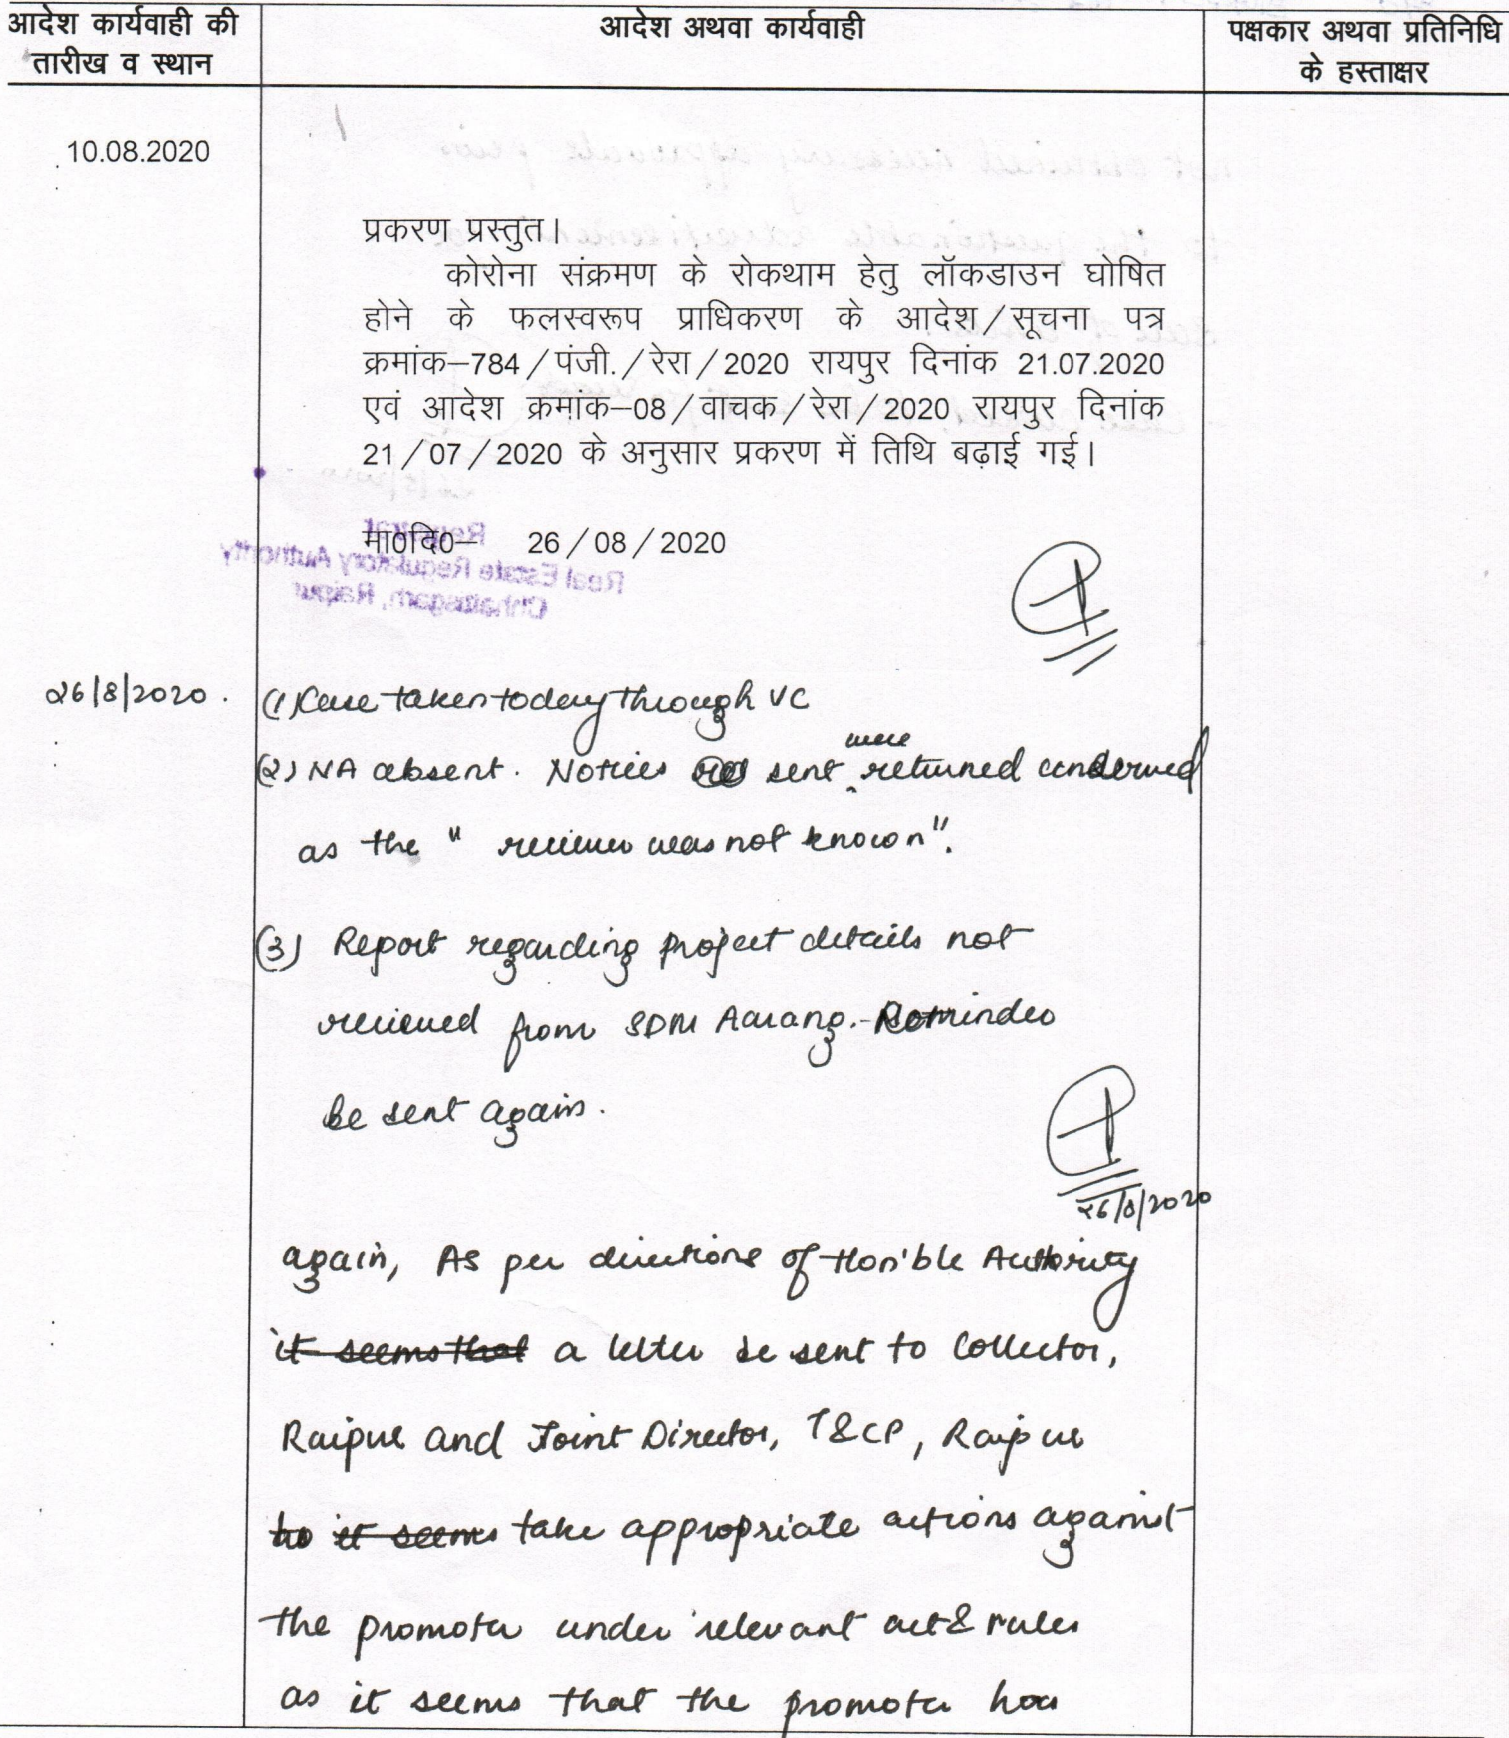 आदेश कार्यवाही की तारीख व स्थान
आदेश अथवा कार्यवाही
पक्षकार अथवा प्रतिनिधि के हस्ताक्षर
10.08.2020
प्रकरण प्रस्तुत।
कोरोना संक्रमण के रोकथाम हेतु लॉकडाउन घोषित
होने के फलस्वरूप प्राधिकरण के आदेश/सूचना पत्र
क्रमांक–784/पंजी./रेरा/2020 रायपुर दिनांक 21.07.2020
एवं आदेश क्रमांक–08/वाचक/रेरा/2020 रायपुर दिनांक
21/07/2020 के अनुसार प्रकरण में तिथि बढ़ाई गई।
मा0दि0– 26/08/2020
Registrar
Real Estate Regulatory Authority
Chhattisgarh, Raipur
26/8/2020.
(1) Case taken today through VC
(2) NA absent. Notices sent were returned
as the "reciever was not known".
(3) Report regarding project details not
recieved from SDM Aarang. Reminder
be sent again.
26/8/2020
again, As per directions of Hon'ble Authority
it seems that a letter be sent to Collector,
Raipur and Joint Director, T&CP, Raipur
to it seems take appropriate actions against
the promoter under relevant act & rules
as it seems that the promoter has